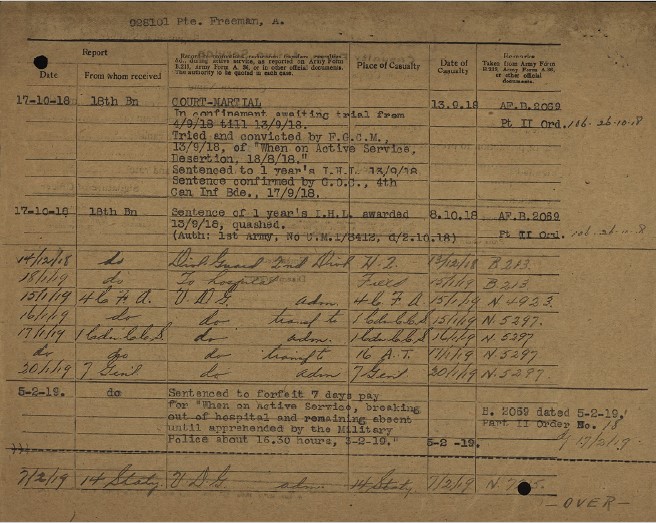 928101 Pte. Freeman, A.
Report
Date
From whom received
Record of promotions, reductions, transfers, casualties,
&c., during active service, as reported on Army Form
B.213, Army Form A. 36, or in other official documents.
The authority to be quoted in each case.
Place of Casualty
Date of
Casualty
Remarks
Taken from Army Form
B.213, Army Form A. 36,
or other official
documents.
17-10-18 18th Bn COURT-MARTIAL 13.9.18 AF.B.2069
In confinement awaiting trial from Pt II Ord. 106-26-10-8
4/9/18 till 13/9/18.
Tried and convicted by F.G.C.M.,
13/9/18, of "When on Active Service,
Desertion, 18/8/18."
Sentenced to 1 year's I.H.L. 13/9/18
Sentence confirmed by G.O.C., 4th
Can Inf Bde., 17/9/18.
17-10-18 18th Bn Sentence of 1 year's I.H.L. awarded 8.10.18 AF.B.2069
13/9/18, quashed. Pt II Ord. 106-26-10-8
(Auth: 1st Army, No C.M.1/3412, d/2.10.18)
14/12/18 do 2nd Div 13/12/18 B213.
18/1/19 do To hospital Field 15/1/19 B213
15/1/19 4 C F A. V D G adm. 4 C F A. 15/1/19 N 4923.
16/1/19 do do transf to 1 Cdn C.C.S 15/1/19 N. 5297.
17/1/19 1 Cdn C.C.S. do adm. 1 Cdn C.C.S 16/1/19 N. 5297
do do do transf to 16 A.T. 17/1/19 N. 5297
20/1/19 7 Gen'l do adm 7 Gen'l 20/1/19 N. 5297.
5-2-19. do Sentenced to forfeit 7 days pay
for "When on Active Service, breaking B. 2069 dated 5-2-19.
out of hospital and remaining absent Part II Order No. 18
until apprehended by the Military d/ 17/2/19.
Police about 16.30 hours, 3-2-19." 5-2-19.
7/2/19 14 Staty. V D G. adm. 14 Staty. 7/2/19
—OVER—